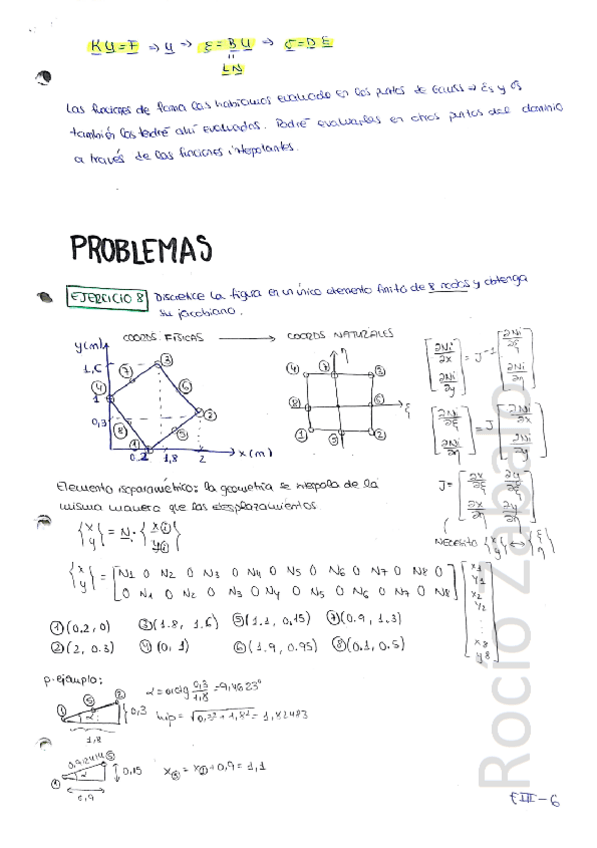 K U = F ⇒ U ⇒ ε = B U ⇒ σ = D ε
"
L N
Las funciones de forma las habíamos evaluado en los puntos de Gauss → εs y σs
también los tendré ahí evaluados. Podré evaluarlas en otros puntos del dominio
a través de las funciones interpolantes.
PROBLEMAS
EJERCICIO 8 Discretice la figura en un único elemento finito de 8 nodos y obtenga
su jacobiano.
COORDS FÍSICAS → COORDS NATURALES
y(m)
1,6
1
0,3
0.2 1,8 2 x(m)
① ② ③ ④ ⑤ ⑥ ⑦ ⑧
η
ξ
① ② ④ ⑤ ⑦ ⑧
[∂Ni/∂x ∂Ni/∂y] = J⁻¹ [∂Ni/∂ξ ∂Ni/∂η]
[∂Ni/∂ξ ∂Ni/∂η] = J [∂Ni/∂x ∂Ni/∂y]
J = [∂x/∂ξ ∂y/∂ξ ∂x/∂η ∂y/∂η]
NECESITO {x y} ↔ {ξ η}
Elemento isoparamétrico: la geometría se interpola de la
misma manera que los desplazamientos.
{x y} = N · {xi yi}
{x y} = [N1 0 N2 0 N3 0 N4 0 N5 0 N6 0 N7 0 N8 0
0 N1 0 N2 0 N3 0 N4 0 N5 0 N6 0 N7 0 N8] [x1 y1 x2 y2 ⋮ x8 y8]
①(0.2, 0) ③(1.8, 1.6) ⑤(1.1, 0.15) ⑦(0.9, 1.3)
②(2, 0.3) ④(0, 1) ⑥(1.9, 0.95) ⑧(0.1, 0.5)
p.ejemplo:
① ⑤ ② α 0.3 1,8
α = arctg 0,3/1,8 = 9,4623°
hip = √0,3² + 1,8² = 1,82483
0,92414 ① ⑤ α 0,15 0,9
x⑤ = x① + 0,9 = 1,1
Rocío Zabalo
FIII-6